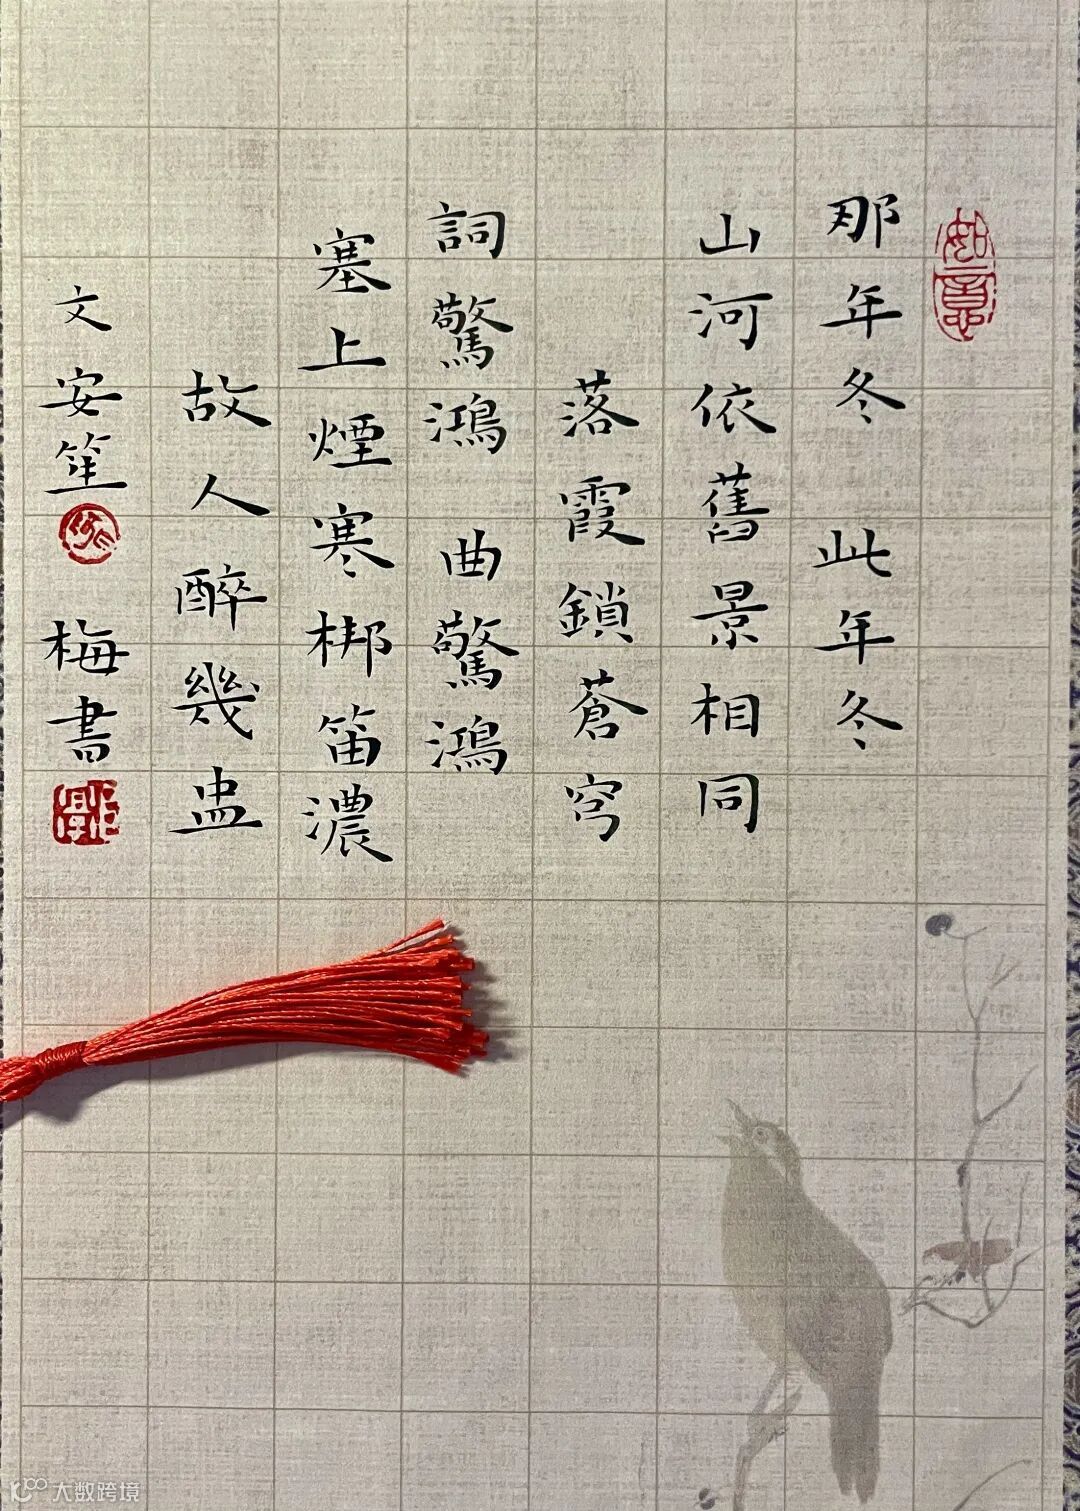 如意
那年冬 此年冬
山河依舊景相同
落霞鎖蒼穹
詞驚鴻 曲驚鴻
塞上煙寒梆笛濃
故人醉幾盅
文安笙 梅書
大数跨境